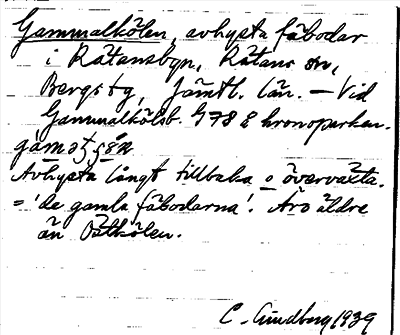 Gammalkölen, avhysta fäbodar
i Rätansbyn, Rätans sn,
Bergs tg, Jämtl. län. — Vid
Gammalkölsb. G78 å kronoparken.
Avhysta långt tillbaka o övervuxta.
= 'de gamla fäbodarna'. Äro äldre
än Östkölen.
C. Lundberg 1939